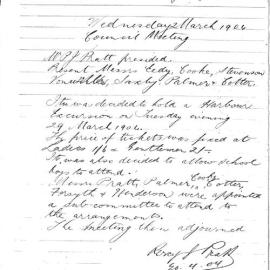 Wednesday 2 March 1904
Council Meeting
Mr P J Pratt presided.
Present Messrs Eedy, Cooke, Stevenson
Vonwiller, Saxby, Palmer & Cotter.
It was decided to hold a Harbour
Excursion on Tuesday evening
29 March 1904.
The price of tickets was fixed at
Ladies 1/6 & Gentlemen 2/-
It was also decided to allow school
boys to attend.
Cooke
Messrs Pratt, Palmer, Cotter,
Forsyth & Henderson were appointed
a sub-committee to attend to
the arrangements.
The meeting then adjourned
Percy J Pratt
20.4.04